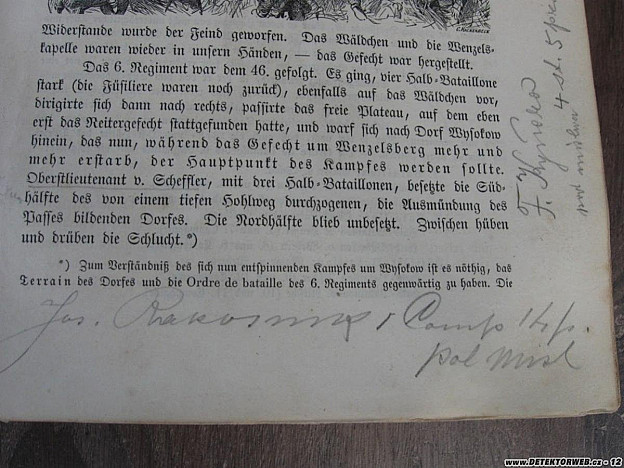 Widerstande wurde der Feind geworfen. Das Wäldchen und die Wenzels-
kapelle waren wieder in unsern Händen, — das Gefecht war hergestellt.
Das 6. Regiment war dem 46. gefolgt. Es ging, vier Halb-Bataillone
stark (die Füsiliere waren noch zurück), ebenfalls auf das Wäldchen vor,
dirigirte sich dann nach rechts, passirte das freie Plateau, auf dem eben
erst das Reitergefecht stattgefunden hatte, und warf sich nach Dorf Wysokow
hinein, das nun, während das Gefecht um Wenzelsberg mehr und
mehr erstarb, der Hauptpunkt des Kampfes werden sollte.
Oberstlieutenant v. Scheffler, mit drei Halb-Bataillonen, besetzte die Süd-
hälfte des von einem tiefen Hohlweg durchzogenen, die Ausmündung des
Passes bildenden Dorfes. Die Nordhälfte blieb unbesetzt. Zwischen hüben
und drüben die Schlucht.*)
*) Zum Verständniß des sich nun entspinnenden Kampfes um Wysokow ist es nöthig, das
Terrain des Dorfes und die Ordre de bataille des 6. Regiments gegenwärtig zu haben. Die
Jos.
www.DETEKTORWEB.cz - 12